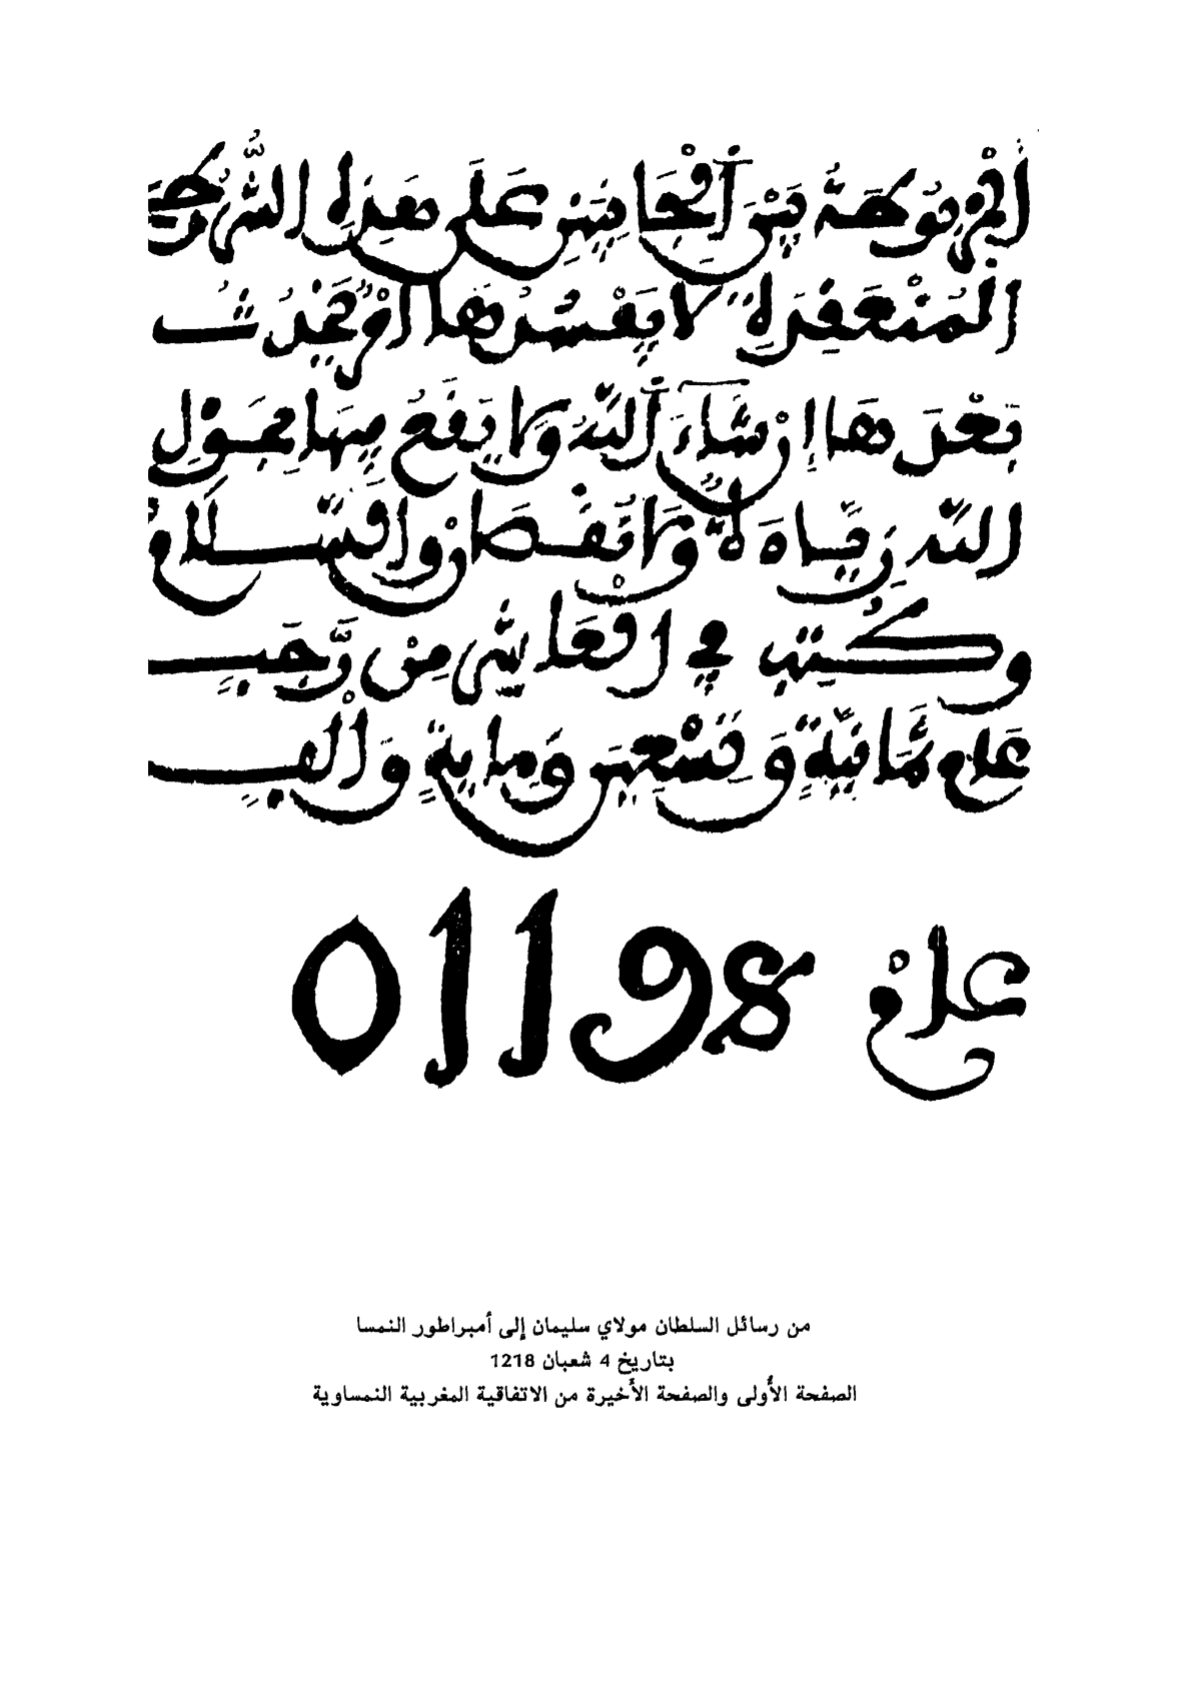 المربوطة بين الجانبين على هذه الشروط
المنعقدة لا يفسدها امر يحدث
بعدها إن شاء الله ولا يقع فيها بحول
الله زيادة ولا نقصان والسلام
وكتب في العاشر من رجب
عام ثمانية وتسعين ومائة وألف
عام 01198
من رسائل السلطان مولاي سليمان إلى أمبراطور النمسا
بتاريخ 4 شعبان 1218
الصفحة الأولى والصفحة الأخيرة من الاتفاقية المغربية النمساوية